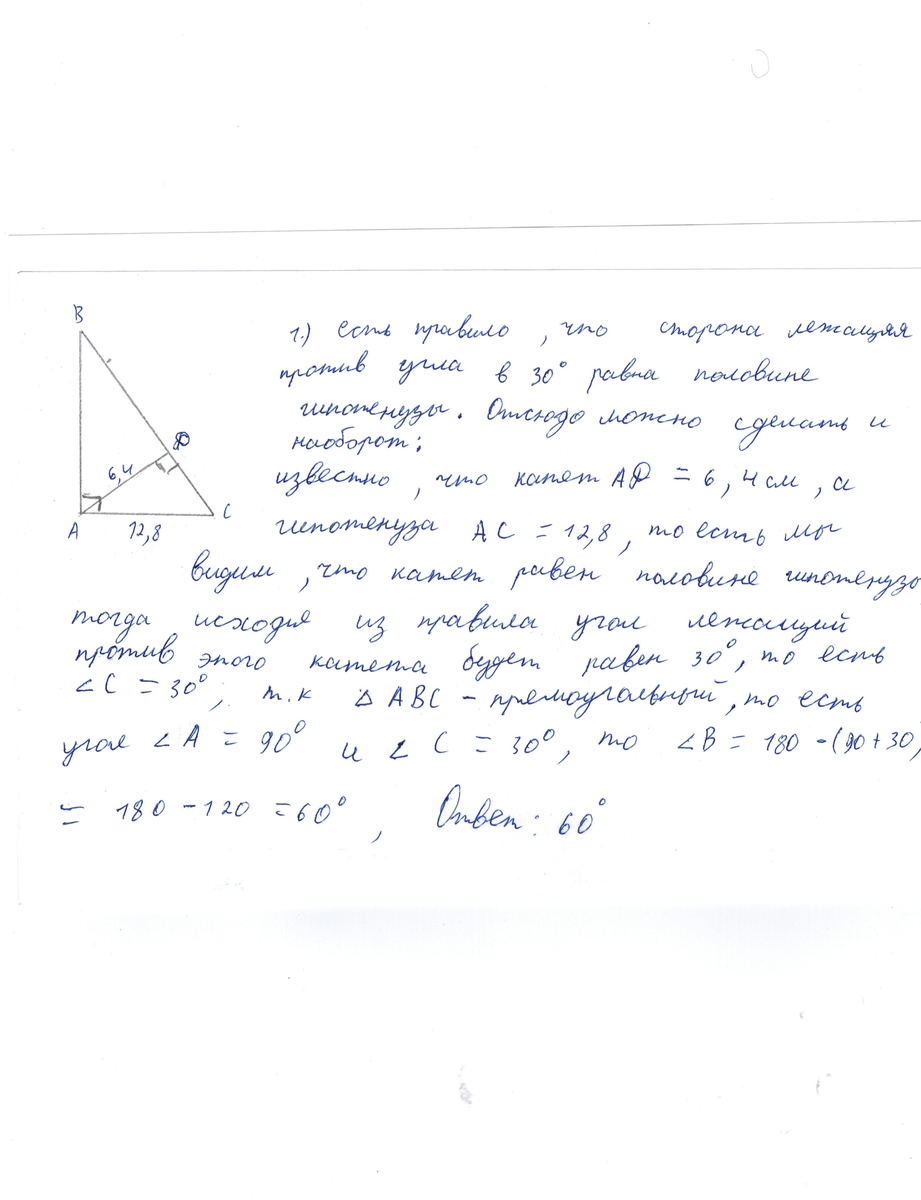 B
D
6,4
A
12,8
C
1.) есть правило, что сторона лежащяя
против угла в 30° равна половине
гипотенузы. Отсюдо можно сделать и
наоборот;
известно, что катет AD = 6,4 см, а
гипотенуза AC = 12,8, то есть мы
видим, что катет равен половине гипотенузы
тогда исходя из правила угол лежащий
против этого катета будет равен 30°, то есть
∠C = 30°, т.к △ABC - прямоугольный, то есть
угол ∠A = 90° и ∠C = 30°, то ∠B = 180 - (90 + 30)
= 180 - 120 = 60°, Ответ: 60°